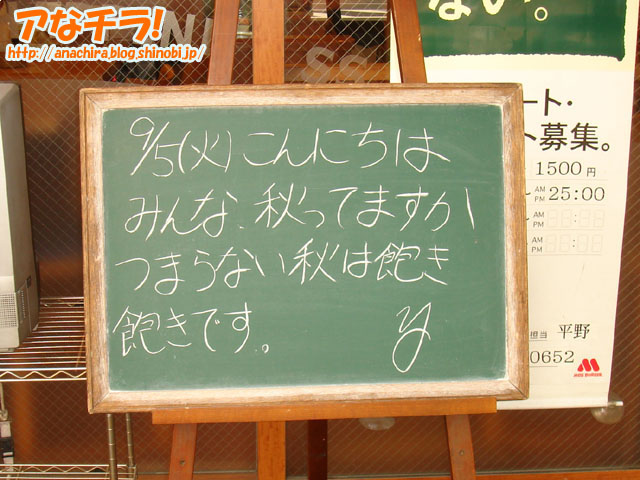 アなチラ!
http://anachira.blog.shinobi.jp/
9/5(火)こんにちは
みんな、秋ってますか
つまらない秋は飽き
飽きです。
y
ない。
ート・
ト募集。
1500円
AM
PM
25:00
AM
PM
AM
PM
担当 平野
0652
MOS BURGER